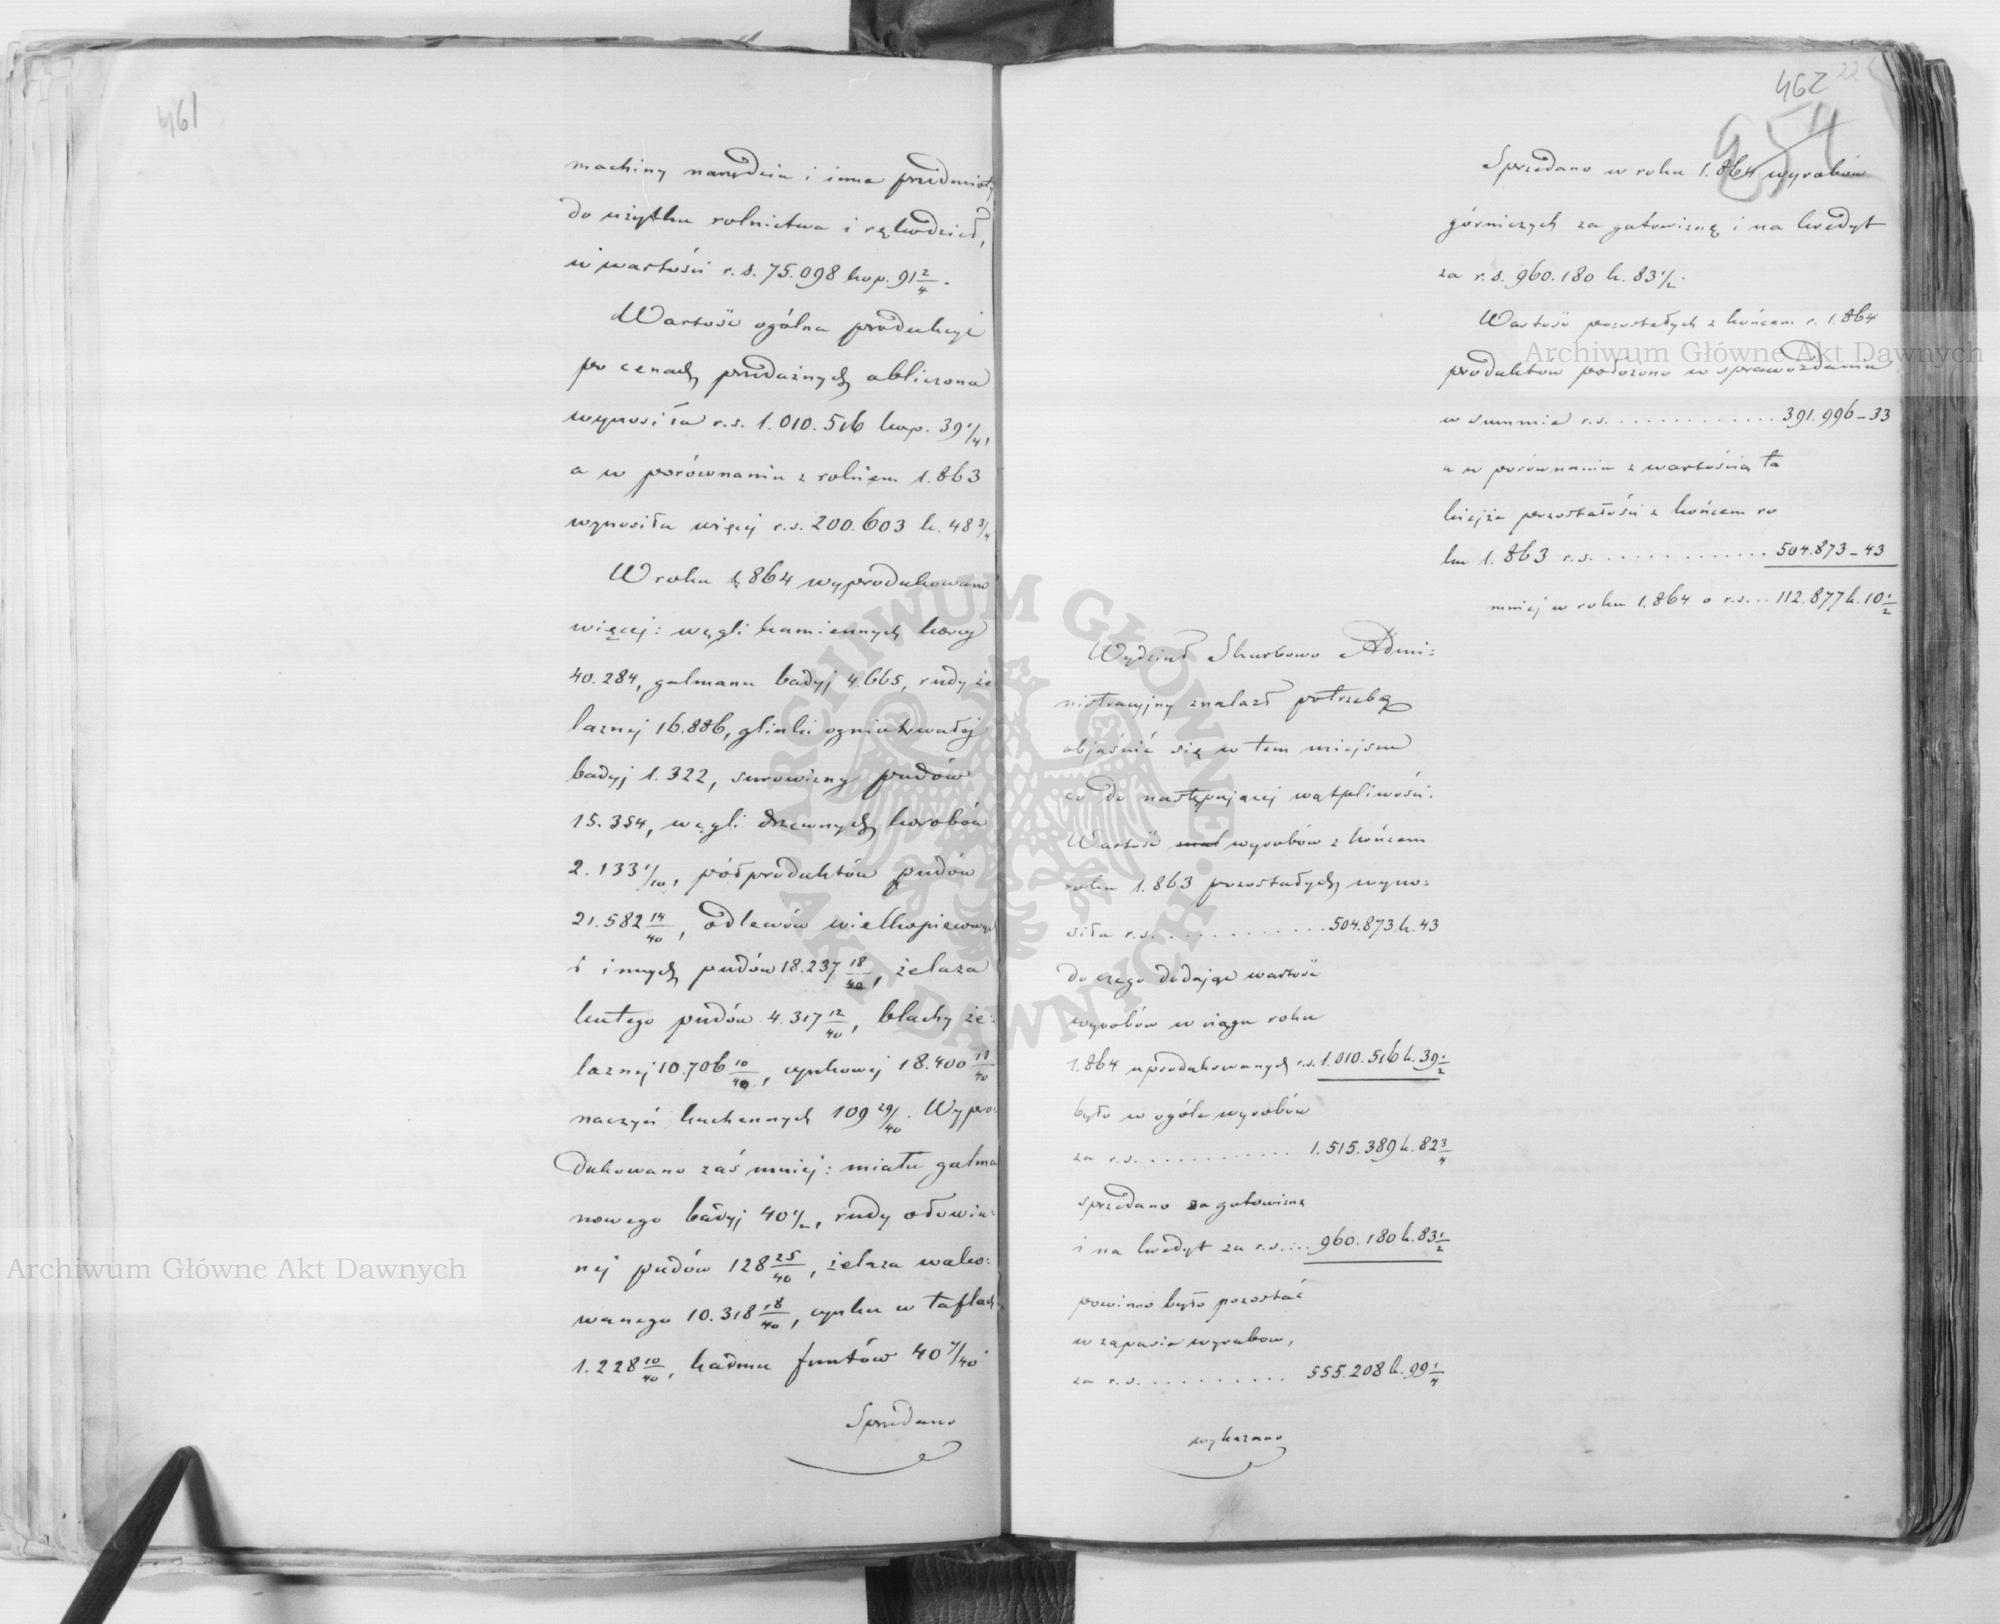 461
machiny narzędzia i inne przedmioty
do użytku rolnictwa i rękodzieł,
w wartości r. s. 75.098 kop. 91 2/4.
Wartość ogólna produkcyi
po cenach przedażnych obliczona
wynosiła r. s. 1.010.516 kop. 39 1/4,
a w porównaniu z rokiem 1.863
wynosiła więcej r. s. 200.603 k. 48 3/4
W roku 1864 wyprodukowano
więcej: węgli kamiennych korcy
40.284, galmanu badyj 4.665, rudy że
laznej 16.886, glinki ogniotrwałej
badyj 1.322, surowizny pudów
15.354, węgli drzewnych korobów
2.133 1/10, półproduktów pudów
21.582 14/40, odlewów wielkopiecowych
i innych pudów 18.237 18/40, żelaza
kutego pudów 4.317 12/40, blachy że:
laznej 10.706 10/40, cynkowej 18.400 11/40
naczyń kuchennych 109 29/40. Wypro:
dukowano zaś mniej: miału galma
nowego badyj 40 1/2, rudy ołowia:
nej pudów 128 25/40, żelaza walco:
wanego 10.318 18/40, cynku w taflach
1.228 10/40, kadmu funtów 40 4/40.
Sprzedano
462
22
954
Sprzedano w roku 1.864 wyrobów
górniczych za gotowiznę i na kredyt
za r. s. 960.180 k. 83 1/2.
Wartość pozostałych z końcem r. 1.864
produktów podożono w sprawozdaniu
w summie r. s. . . . . . . . . . . . . 391.996 - 33
a w porównaniu z wartością ta
kiejże pozostałości z końcem ro
ku 1.863 r. s. . . . . . . . . . . . . 504.873 - 43
mniej w roku 1.864 o r. s. . . 112.877 k. 10 1/2
Wydział Skarbowo Admi:
nistracyjny znalazł potrzebę
objaśnić się w tem miejscu
co do następującej wątpliwości.
Wartość wyrobów z końcem
roku 1.863 pozostałych wyno:
siła r. s. . . . . . . . . . . . . 504.873 k. 43
do czego dodając wartość
wyrobów w ciągu roku
1.864 uprodukowanych r. s. 1.010.516 k. 39 1/2
było w ogóle wyrobów
za r. s. . . . . . . . . . . . 1.515.389 k. 82 3/4
sprzedano za gotowiznę
i na kredyt za r. s. . . . 960.180 k. 83 1/2
powinno było pozostać
w zapasie wyrobów,
za r. s. . . . . . . . . . . 555.208 k. 99 1/4
wykazano
Archiwum Główne Akt Dawnych
Archiwum Główne Akt Dawnych
ARCHIWUM GŁÓWNE AKT DAWNYCH